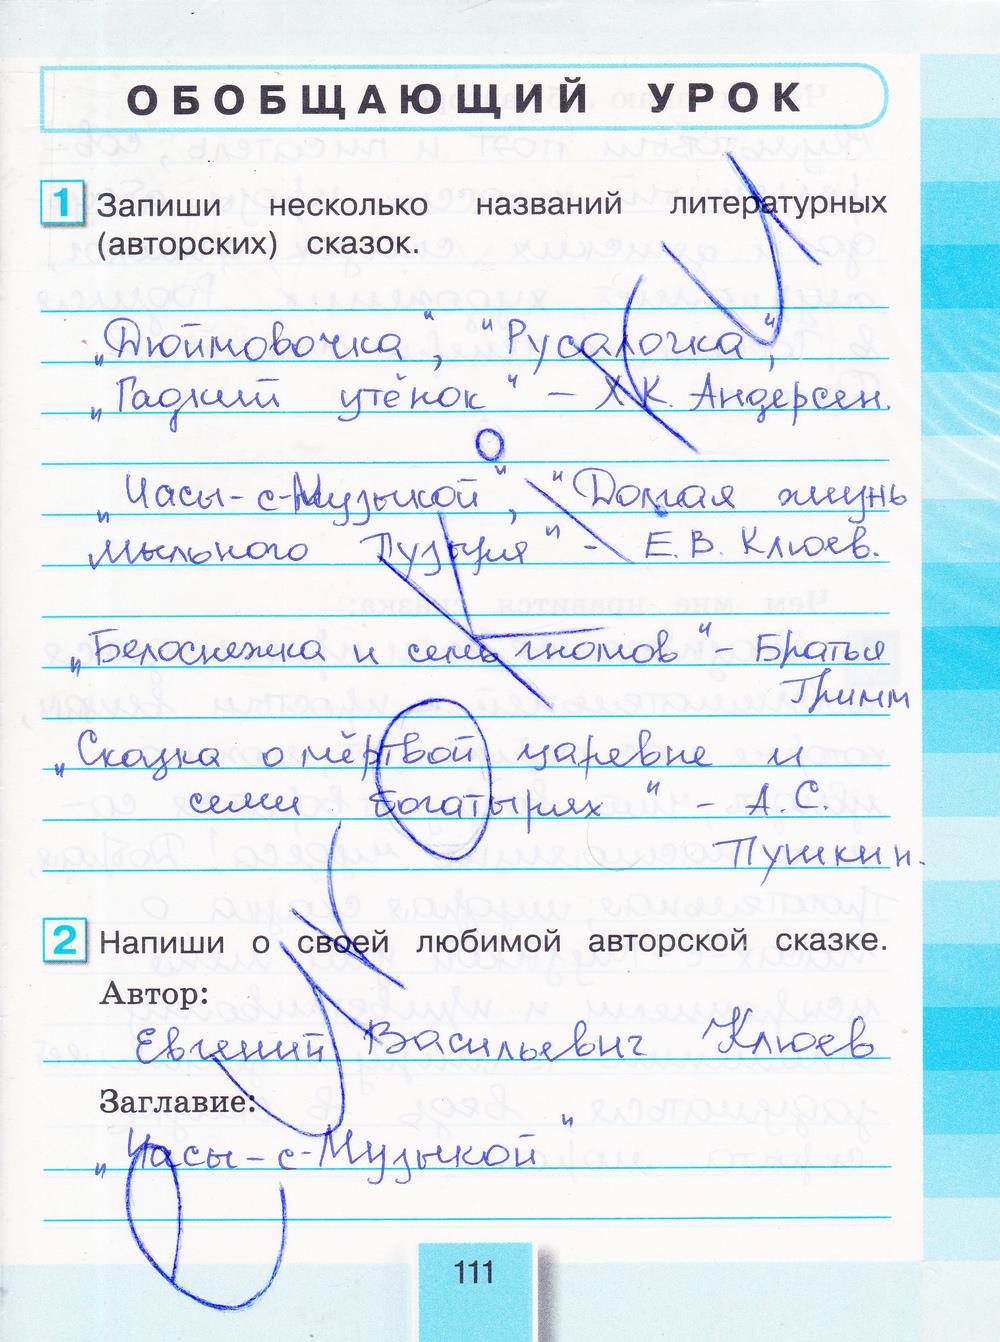 ОБОБЩАЮЩИЙ УРОК
1 Запиши несколько названий литературных
(авторских) сказок.
„Дюймовочка“, “Русалочка“,
„Гадкий утёнок“ – Х.К. Андерсен.
„Часы-с-Музыкой“, “Долгая жизнь
мыльного Пузыря“ – Е.В. Клюев.
„Белоснежка и семь гномов“ – Братья
Гримм
„Сказка о мёртвой царевне и
семи богатырях“ – А.С.
Пушкин.
2 Напиши о своей любимой авторской сказке.
Автор:
Евгений Васильевич Клюев
Заглавие:
„Часы-с-Музыкой“
111